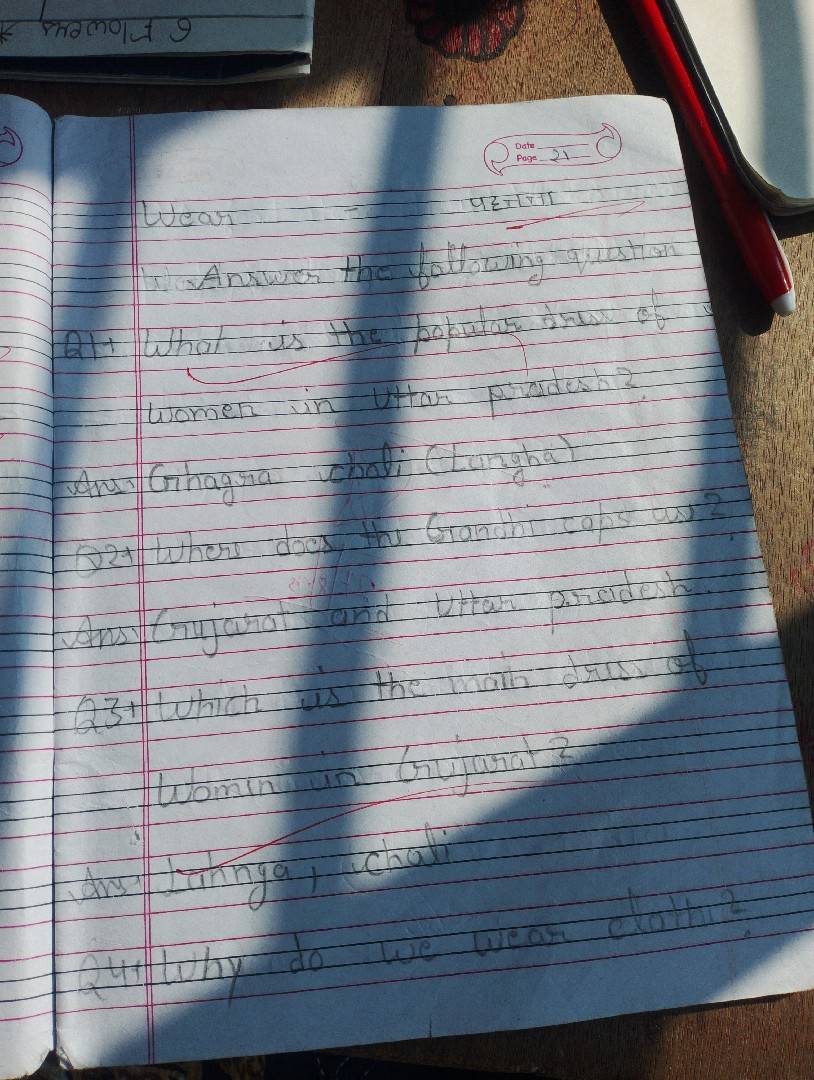 6 Flowers
Date
Page 21
Wear - पहनना
Answer the following question
Q1+ What is the popular dress of
women in Uttar pradesh?
Ans. Grhagra choli (Langha)
Q2+ Where does the Grandhi caps use?
Ans. Grujarat and Uttar pradesh.
Q3+ Which is the main dress of
Women in Grujarat?
Ans. Lahnga, choli
Q4+ Why do we wear cloth?